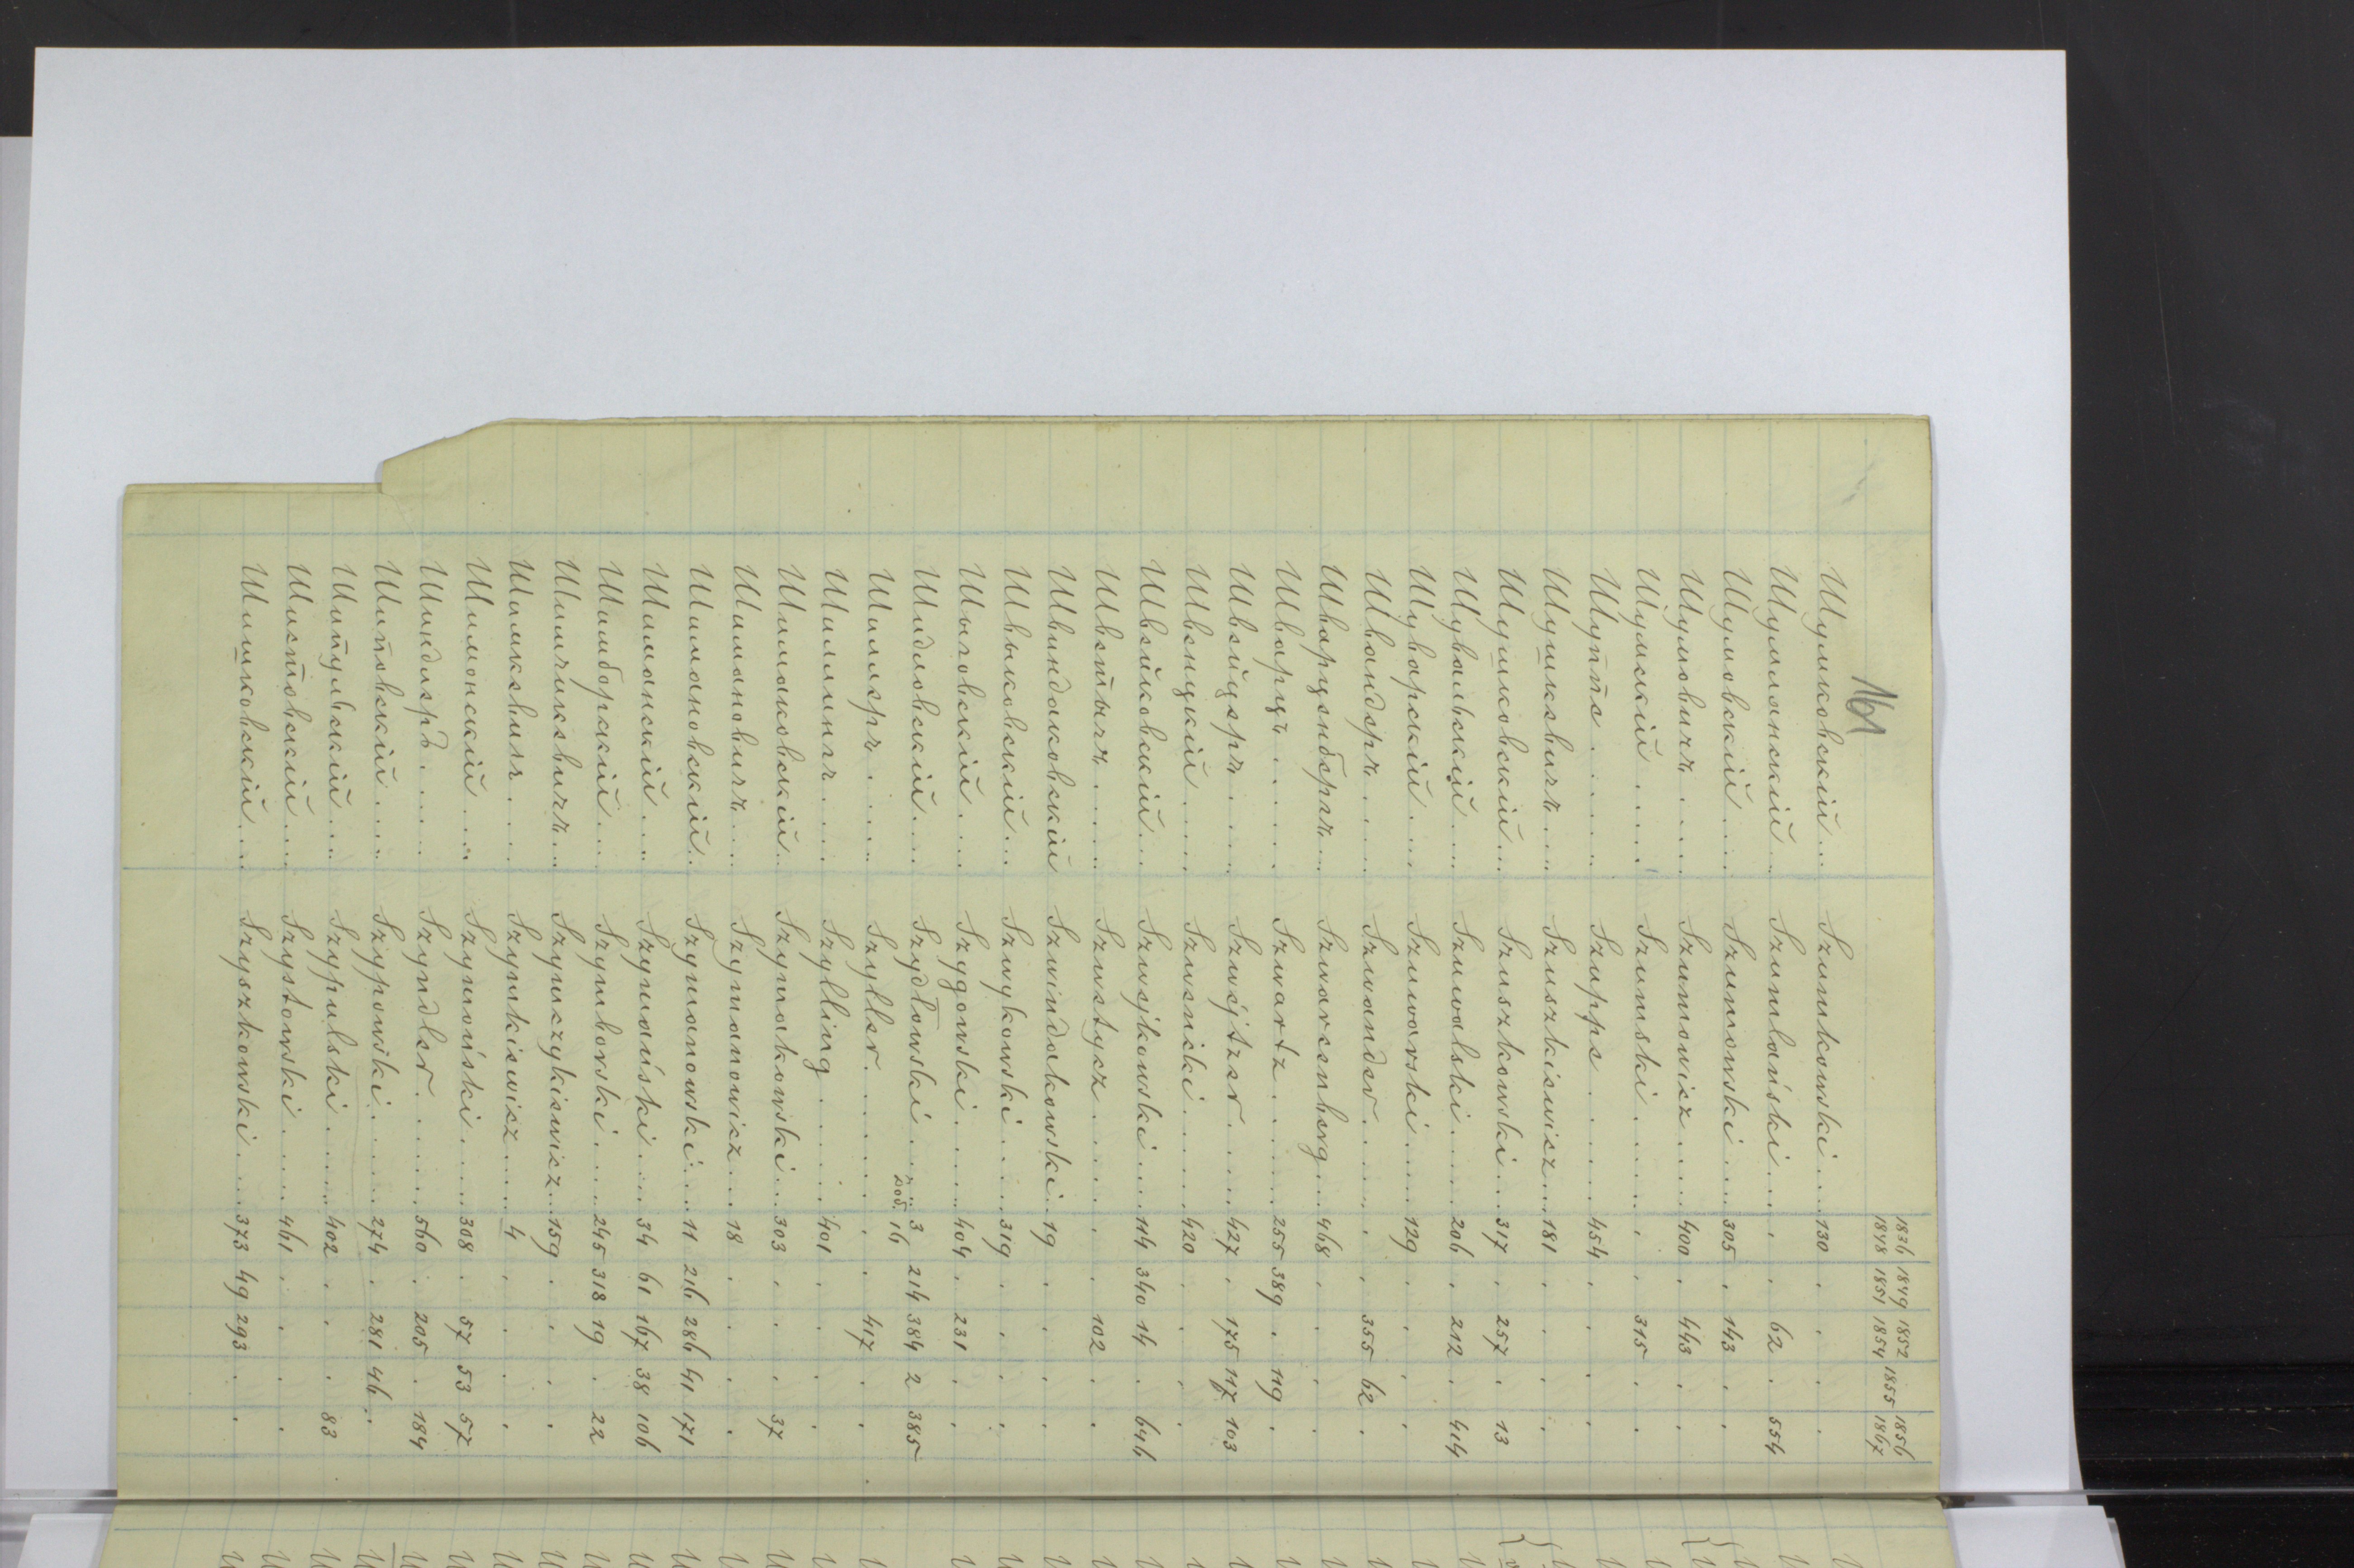 161
1836 1849 1852 1855 1856
1848 1851 1854 1867
Шумковскій... Szumkowski....130 . . . .
Шумланскій... Szumlański..... . . 62 . 554
Шумовскій.... Szumowski....305 . 143 . .
Шумовичъ..... Szumowicz....400 . 443 . .
Шумскій..... Szumski....... . . 315 . .
Шуппе...... Szuppe......454 . . . .
Шушкевичъ.... Szuszkiewicz....181 . . . .
Шушковскій... Szuszkowski....317 . 257 . 13
Шувальскій... Szuwalski.....206 . 212 . 414
Шуварскій.... Szuwarski.....129 . . . .
Швандеръ..... Szwander...... . . 355 62 .
Шварценбергъ... Szwarcenberg...468 . . . .
Шварцъ...... Szwartz......255 389 . 119 .
Швейцеръ.... Szwéjtzer.....427 . 175 117 103
Швеницкій.... Szwenicki......420 . . . .
Швейковскій... Szwejkowski....114 340 14 . 646
Шветычъ..... Szwetycz...... . . 102 . .
Швиндаковскій Szwindakowski...19 . . . .
Швыковскій... Szwykowski....319 . . . .
Шыговскій.... Szygowski.....404 . 231 . .
Шидловскій.... Szydłowski.....3 214 384 2 385
16
Шиллеръ..... Szyller....... . . 417 . .
Шиллингъ.... Szylling......401 . . . .
Шимаковскій.. Szymakowski...303 . . . 37
Шимановичъ.... Szymanowicz...18 . . . .
Шимановскій... Szymanowski....11 216 286 41 171
Шиманскій... Szymański....34 61 167 38 106
Шимборскій... Szymborski....245 318 19 . 22
Шимчикевичъ... Szymczykiewicz...159 . . . .
Шимкевичъ.... Szymkiewicz.....4 . . . .
Шимонскій.... Szymoński.....308 . 57 53 57
Шиндлеръ..... Szyndler......560 . 205 . 184
Шиповскій.... Szypowski......274 . 281 46 .
Шипульскій... Szypulski......402 . . . 83
Шистовскій.... Szystowski.....461 . . . .
Шишковскій.... Szyszkowski....373 49 293 . .